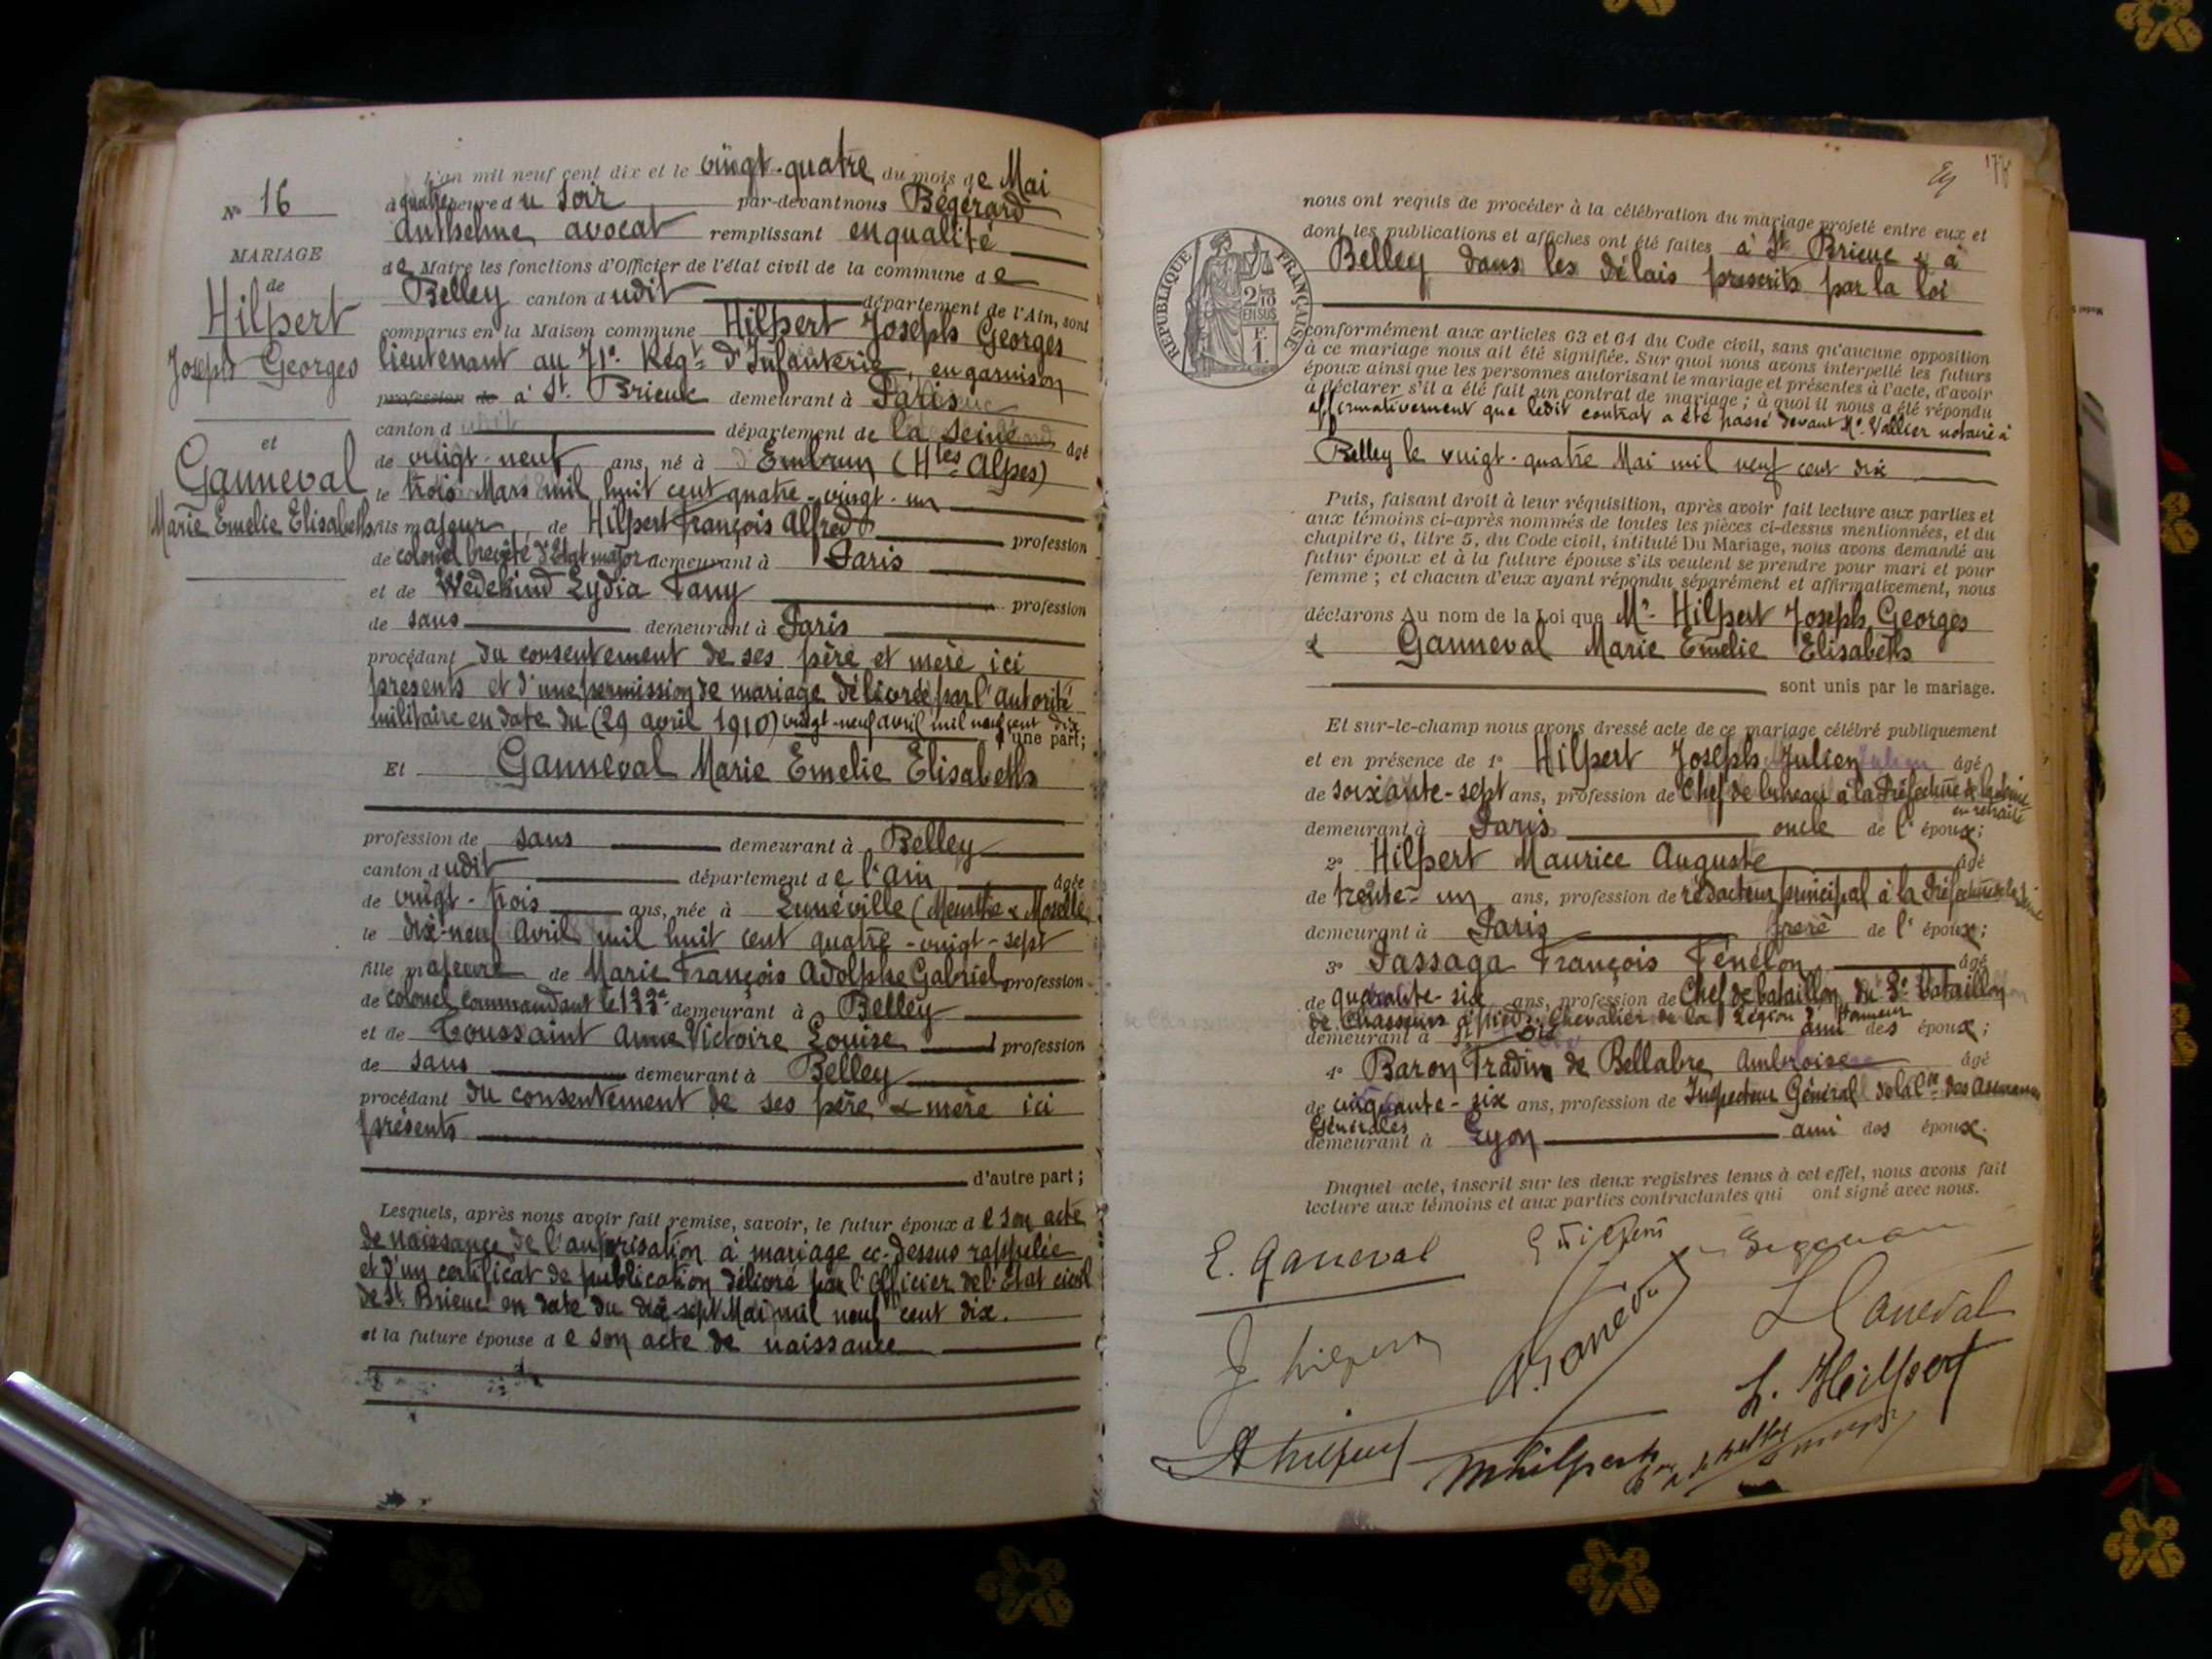 L'an mil neuf cent dix et le vingt-quatre du mois de Mai
N° 16
à quatre heure du soir par-devant nous Bégérard
Anthelme, avocat remplissant en qualité
MARIAGE
de Maire les fonctions d'Officier de l'état civil de la commune de
de
Belley canton dudit département de l'Ain, sont
Hilpert
comparus en la Maison commune Hilpert Joseph Georges
Joseph Georges
lieutenant au 71e Régt d'Infanterie, en garnison
profession de à St. Brieuc demeurant à Paris
canton d département de la Seine âgé
et
de vingt-neuf ans, né à Embrun (Htes Alpes)
Ganneval
le trois Mars mil huit cent quatre-vingt-un
Marie Emelie Elisabeth
fils majeur, de Hilpert François Alfred profession
de colonel breveté d'Etat major demeurant à Paris
et de Wedekind Lydia Fany profession
de sans demeurant à Paris
procédant du consentement de ses père et mère ici
présents et d'une permission de mariage délivrée par l'autorité
militaire en date du (29 avril 1910) vingt-neuf avril mil neuf cent dix
d'une part;
Et Ganneval Marie Emelie Elisabeth
profession de sans demeurant à Belley
canton dudit département de l'Ain âgée
de vingt-trois ans, née à Lunéville (Meurthe & Moselle)
le dix-neuf Avril mil huit cent quatre-vingt-sept
fille majeure de Marie François Adolphe Gabriel profession
de colonel commandant le 133e demeurant à Belley
et de Toussaint Anne Victoire Louise profession
de sans demeurant à Belley
procédant du consentement de ses père & mère ici
présents
d'autre part;
Lesquels, après nous avoir fait remise, savoir, le futur époux de son acte
de naissance, de l'autorisation à mariage ci-dessus rappelée
et d'un certificat de publication délivré par l'Officier de l'Etat civil
de St. Brieuc en date du dix-sept Mai mil neuf cent dix.
et la future épouse de son acte de naissance
nous ont requis de procéder à la célébration du mariage projeté entre eux et
dont les publications et affiches ont été faites à St. Brieuc & à
Belley dans les délais prescrits par la loi
RÉPUBLIQUE FRANÇAISE
2/10 EN SUS
F. 1.
conformément aux articles 63 et 64 du Code civil, sans qu'aucune opposition
à ce mariage nous ait été signifiée. Sur quoi nous avons interpellé les futurs
époux ainsi que les personnes autorisant le mariage et présentes à l'acte, d'avoir
à déclarer s'il a été fait un contrat de mariage; à quoi il nous a été répondu
affirmativement que ledit contrat a été passé devant Me. Vallier notaire à
Belley le vingt-quatre Mai mil neuf cent dix
Puis, faisant droit à leur réquisition, après avoir fait lecture aux parties et
aux témoins ci-après nommés de toutes les pièces ci-dessus mentionnées, et du
chapitre 6, titre 5, du Code civil, intitulé Du Mariage, nous avons demandé au
futur époux et à la future épouse s'ils veulent se prendre pour mari et pour
femme; et chacun d'eux ayant répondu séparément et affirmativement, nous
déclarons Au nom de la Loi que Mr. Hilpert Joseph Georges
& Ganneval Marie Emelie Elisabeth
sont unis par le mariage.
Et sur-le-champ nous avons dressé acte de ce mariage célébré publiquement
et en présence de 1° Hilpert Joseph Julien âgé
de soixante-sept ans, profession de Chef de bureau à la Préfecture de la Seine
en retraite
demeurant à Paris oncle de l'époux;
2° Hilpert Maurice Auguste âgé
de trente-un ans, profession de rédacteur principal à la Préfecture de la Seine
demeurant à Paris frère de l'époux;
3° Passaga François Fénélon âgé
de quarante-six ans, profession de Chef de bataillon du 3e bataillon
de Chasseurs à pied, Chevalier de la Légion d'honneur
demeurant à St. Dié ami des époux;
4° Baron Pradin de Bellabre Ambroise âgé
de cinquante-six ans, profession de Inspecteur Général de la Cie des Assurances
Générales
demeurant à Lyon ami des époux.
Duquel acte, inscrit sur les deux registres tenus à cet effet, nous avons fait
lecture aux témoins et aux parties contractantes qui ont signé avec nous.
E. Ganeval
L Ganeval
J Hilpert
L. Hilpert
A Hilpert
M Hilpert